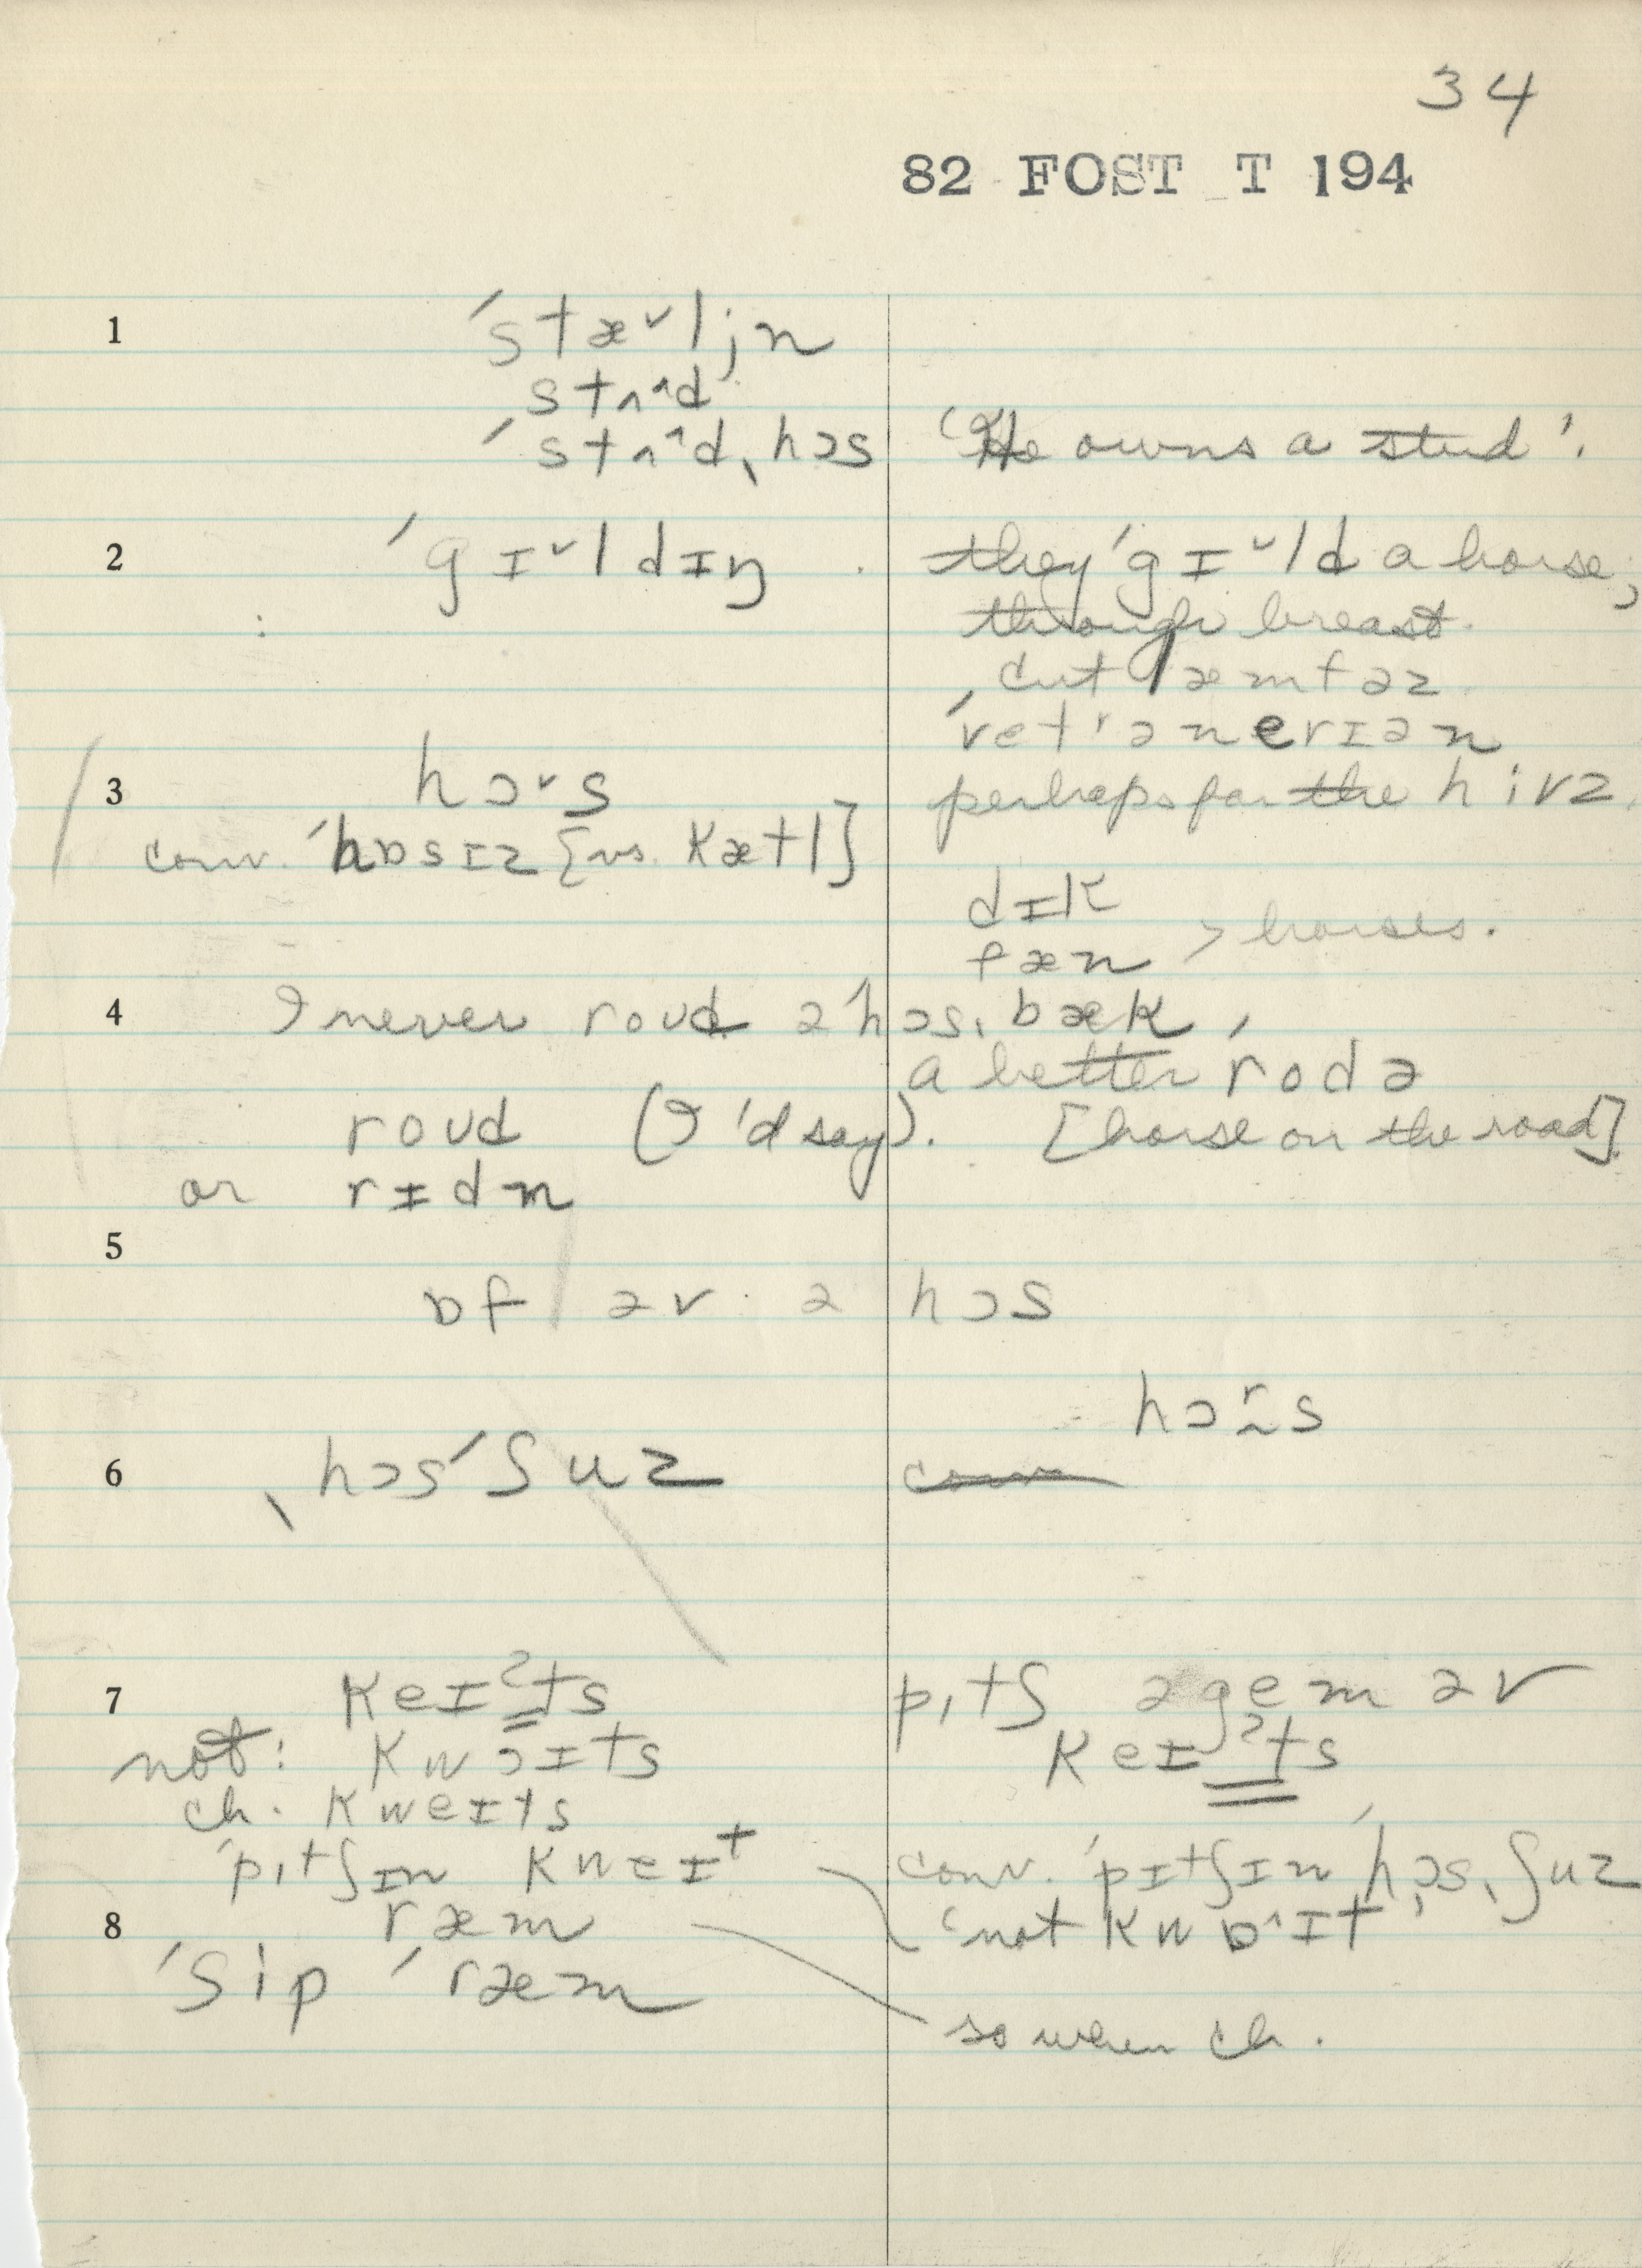 34
82 FOST T 194
1 ˈstæˇljn
stʌ^d
ˈstʌ^dˌhɔs 'He owns a stud'.
2 ˈgɪˇldɪŋ they ˈgɪˇld a horse,
through breast.
cut æmfəz
ˈvetʳənerɪən
3 hɔˇs perhaps for the hivz.
conv. ˈhɒsɪz [vs. kætl]
dɪk
fæn > horses.
4 I never roʊd əˈhɔsˌbæk,
a better ˈrodə
roʊd (I'd say). [horse on the road]
or rɪdn
5
ɒf əv ə hɔs
hɔʳs
6 ˌhɔsˈʃuz conv
7 keɪˀts pɪtʃ ə gem əv
not: kwɔɪts keɪˀts
ch. kweɪts
ˈpɪtʃɪn kweɪt conv. ˈpɪtʃɪn ˈhɔsˌʃuz
8 ræm 'not kwɒ^ɪt'
ˈʃip ˈræm
so when ch.